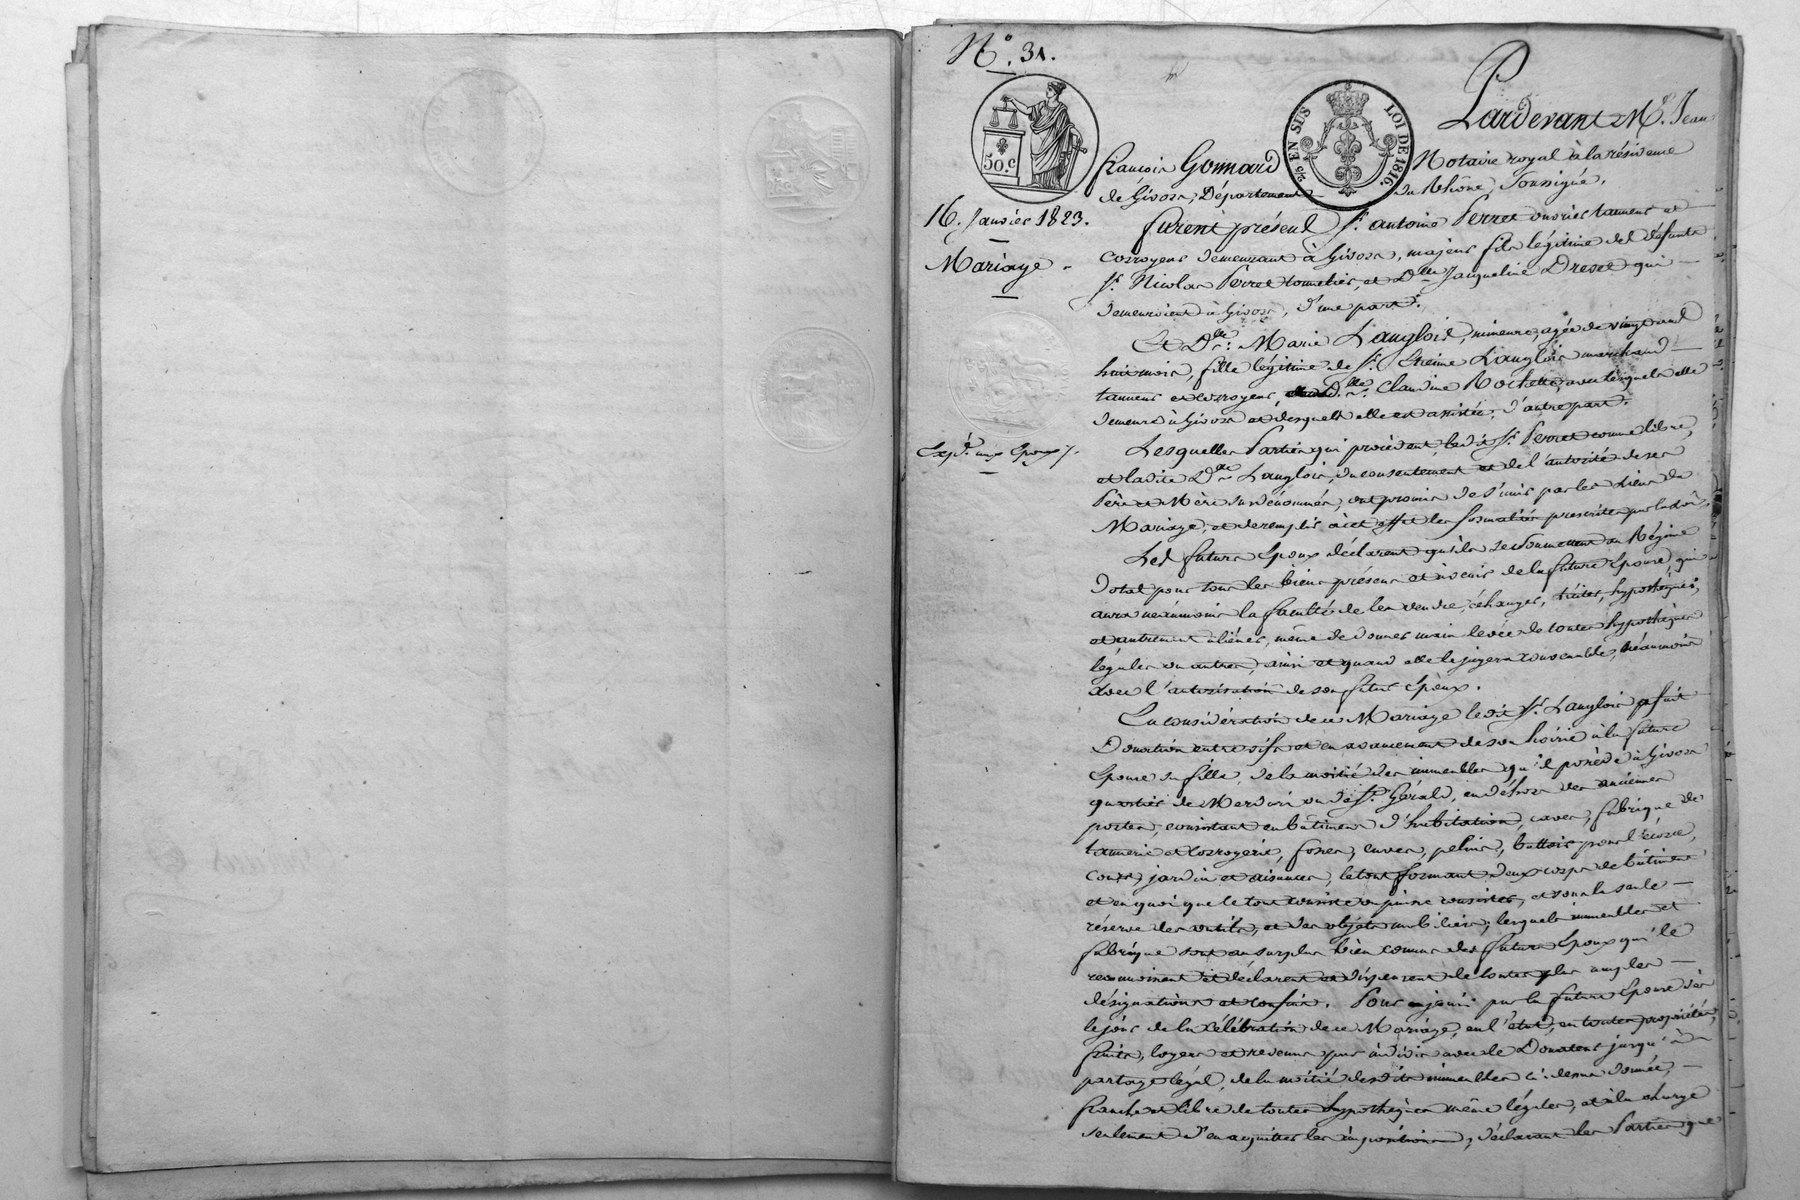 N.° 31.
50.c
2/5 EN SUS LOI DE 1816.
Pardevant M.e Jean
françois Gonnard Notaire royal à la résidence
de Givors, Département du Rhône, soussigné,
16. Janvier 1823.
Mariage
Exp.é aux Epoux
furent présens Sr. antoine Perret ouvrier tanneur et
corroyeur demeurant à Givors, majeur fils légitime des défunts
Sr. Nicolas Perret tonnelier, et Dlle Jacqueline Drevet qui
demeuroient à Givors, d'une part.
Et Dlle. Marie Langlois, mineure, agée de vingt ans
huit mois, fille légitime de Sr. Etienne Langlois marchand
tanneur et corroyeur, Dlle. Claudine Rochette, avec lesquels elle
demeure à Givors et desquels elle est assistée, d'autre part.
Lesquelles Parties qui procèdent, ledit Sr. Perret comme libre,
et ladite Dlle Langlois, du consentement et de l'autorité de ses
Père et Mère susdénommés, ont promis de s'unir par les liens du
Mariage, et de remplir à cet effet les formalités prescrites par la loi.
Les futurs Epoux déclarent qu'ils se soumettent au Régime
dotal pour tous les biens présens et à venir de la future Epouse, qui
aura néanmoins la faculté de les vendre, échanger, traiter, hypothéquer,
et autrement aliéner, même de donner main levée de toutes hypothèques
légales ou autres, ainsi et quand elle le jugera convenable, néanmoins
avec l'autorisation de son futur Epoux.
En considération de ce Mariage ledit Sr. Langlois fait
Donation entre vifs et en avancement de son hoirie à la future
Epouse sa fille, de la moitié des immeubles qu'il possède à Givors
quartier de ou de St. Gérald, en déhors des anciennes
portes, consistant en bâtimens d'habitation, caves, fabrique de
tannerie et corroyerie, fosses, cuves, pelins, battoir pour l'écorce,
cours, jardin et aisances, le tout formant deux corps de bâtimens
et en quoi que le tout consiste ou puisse consister, et sous la seule
réserve des outils, et des objets mobiliers; lesquels immeubles et
fabrique sont au surplus bien connus des futurs Epoux qui le
reconnoissent et déclarent et dispensent de toutes plus amples
désignations et confins. Pour en jouir par la future Epouse dès
le jour de la célébration de ce Mariage, en l'état, en toutes propriétés,
fruits, loyers et revenus par indivis avec le Donateur jusqu'à
partage légal, de la moitié desdits immeubles ci-dessus donnée,
franche et libre de toutes hypothèques même légales, et à la charge
seulement d'en acquitter les impositions, déclarant les Parties que